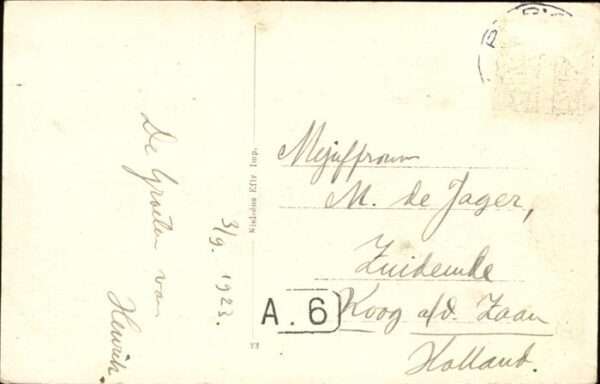 De Groeten van
Henrik.
3/9. 1923.
Nielsens Eftr Imp.
Mejuffrouw
M. de Jager,
Zuideinde
A.6
Koog a/d. Zaan
Holland.